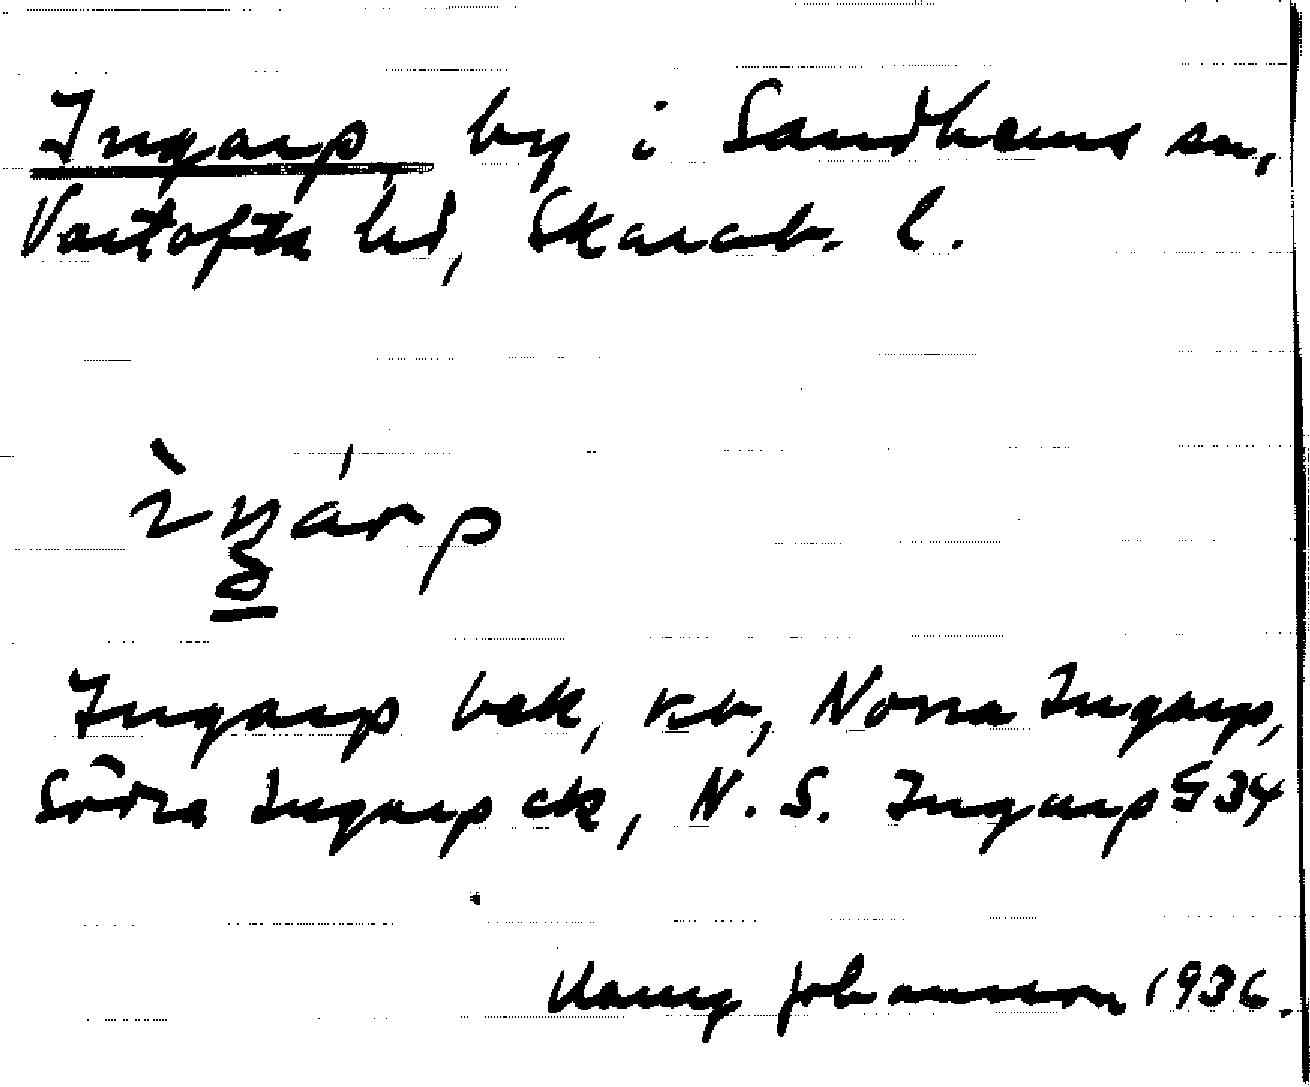 Ingarp by i Sandhems sn,
Vartofta hd, Skarab. l.
ìŋárp
Ingarp bek, kb, Norra Ingarp,
Södra Ingarp ek, N. S. Ingarp G34
Johansson 1936.